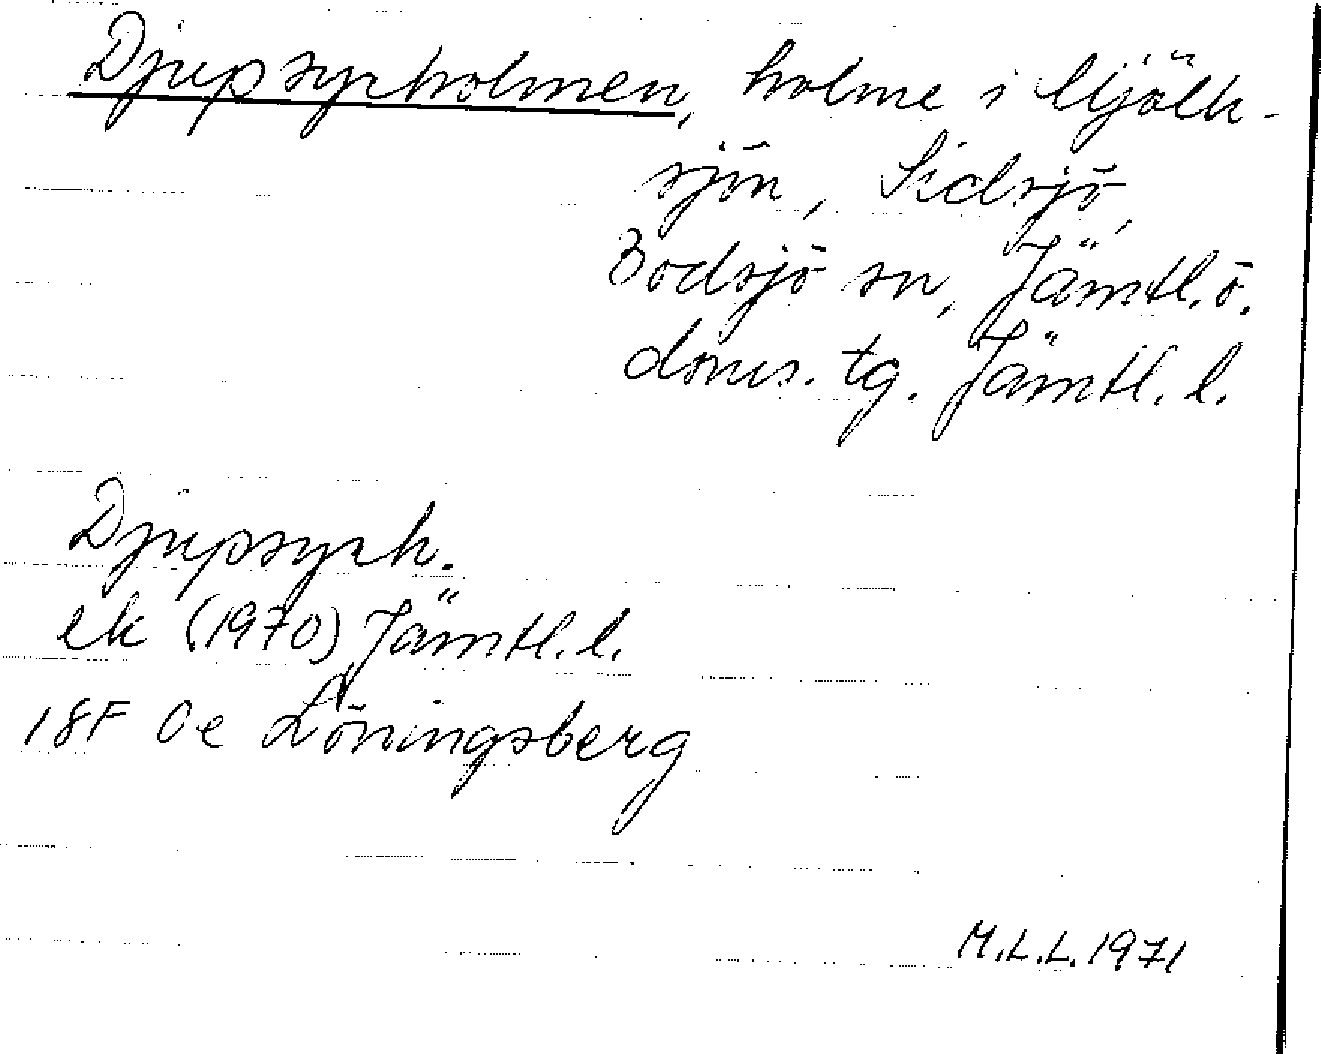 Djupsyrholmen, holme i Mjölk-
sjön, Sidsjö,
Bodsjö sn, Jämtl. ö.
doms. tg. Jämtl. l.
Djupsyrh.
ek (1970) Jämtl. l.
18F 0e Löningsberg
M.L.L. 1971